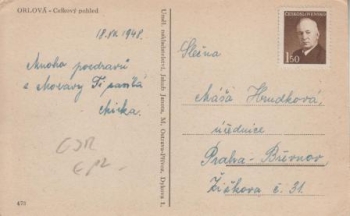 ORLOVÁ - Celkový pohled
18.VII.1948.
Mnoho pozdravů
z Moravy Ti posílá
Mirka.
ČSR
472
Uměl. nakladatelství, Jakub Janura, M. Ostrava-Přívoz, Dykova 1.
ČESKOSLOVENSKO
1.50
Slečna
Máša Hrudková,
úřednice
Praha-Břevnov
Žižkova č. 31.